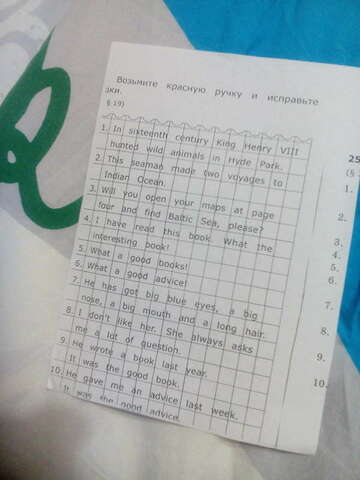 Возьмите красную ручку и исправьте
§ 19)
1. In sixteenth century King Henry VIII
hunted wild animals in Hyde Park.
2. This seaman made two voyages to
Indian Ocean.
3. Will you open your maps at page
four and find Baltic Sea, please?
4. I have read this book. What the
interesting book!
5. What a good books!
6. What a good advice!
7. He has got big blue eyes, a big
nose, a big mouth and a long hair.
8. I don't like her. She always asks
me a lot of question.
9. He wrote a book last year.
It was the good book.
10. He gave me an advice last week.
It was the good advice.
25
(§
1.
2.
3.
4.
5.
6.
7.
8.
9.
10.